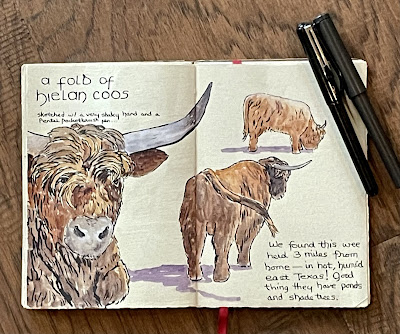 a fold of
hielan coos
sketched w/ a very shaky hand and a
Pentel pocket brush pen
We found this wee
herd 3 miles from
home — in hot, humid
east Texas! Good
thing they have ponds
and shade trees.